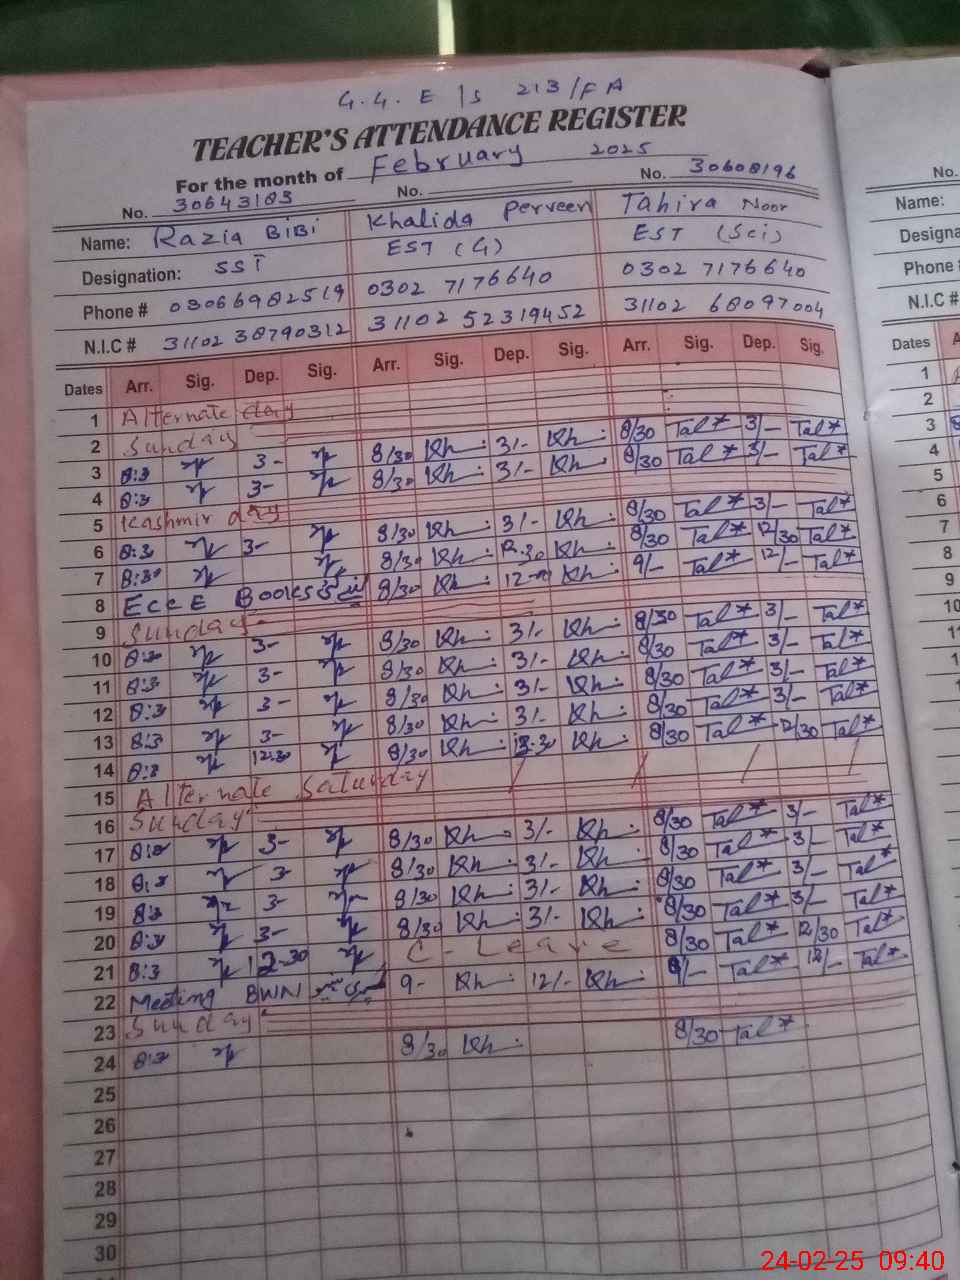 G.G.E/S 213/FA
TEACHER'S ATTENDANCE REGISTER
For the month of February 2025
No. 30643183 No. No. 30608196
Name: Razia BiBi Khalida Perveen Tahira Noor
Designation: SST EST (G) EST (Sci)
Phone # 03066982519 0302 7176640 0302 7176640
N.I.C # 31102 38790312 31102 52319452 31102 68097004
Dates Arr. Sig. Dep. Sig. Arr. Sig. Dep. Sig. Arr. Sig. Dep. Sig.
1 Alternate day
2 Sunday
3 8:3 3- 8/30 Kh. 3/- Kh. 8/30 Tal* 3/- Tal*
4 8:3 3- 8/30 Kh. 3/- Kh. 8/30 Tal* 3/- Tal*
5 Kashmir day
6 8:3 3- 8/30 Kh. 3/- Kh. 8/30 Tal* 3/- Tal*
7 8:30 8/30 Kh. 12.30 Kh. 8/30 Tal* 12/30 Tal*
8 ECCE Books 8/30 Kh. Kh. 9/- Tal* 12/- Tal*
9 Sunday
10 3- 8/30 Kh. 3/- Kh. 8/30 Tal* 3/- Tal*
11 8:3 3- 8/30 Kh. 3/- Kh. 8/30 Tal* 3/- Tal*
12 8:3 3- 8/30 Kh. 3/- Kh. 8/30 Tal* 3/- Tal*
13 8:3 3- 8/30 Kh. 3/- Kh. 8/30 Tal* 3/- Tal*
14 8:3 12:30 8/30 Kh. Kh. 8/30 Tal* 12/30 Tal*
15 Alternate Saturday
16 Sunday
17 3- 8/30 Kh. 3/- Kh. 8/30 Tal* 3/- Tal*
18 8:3 3- 8/30 Kh. 3/- Kh. 8/30 Tal* 3/- Tal*
19 8:3 3- 8/30 Kh. 3/- Kh. 8/30 Tal* 3/- Tal*
20 8:3 3- 8/30 Kh. 3/- Kh. 8/30 Tal* 3/- Tal*
21 8:3 12-30 C-Leave 8/30 Tal* 12/30 Tal*
22 Meeting BWN 9- Kh. 12/- Kh. 9/- Tal* 12/- Tal*
23 Sunday
24 8:3 8/30 Kh. 8/30 Tal*
25
26
27
28
29
30
No.
Name:
Designa
Phone #
N.I.C #
Dates A
1
2
3
4
5
6
7
8
9
10
11
12
13
14
15
16
17
18
19
20
21
22
23
24-02-25 09:40